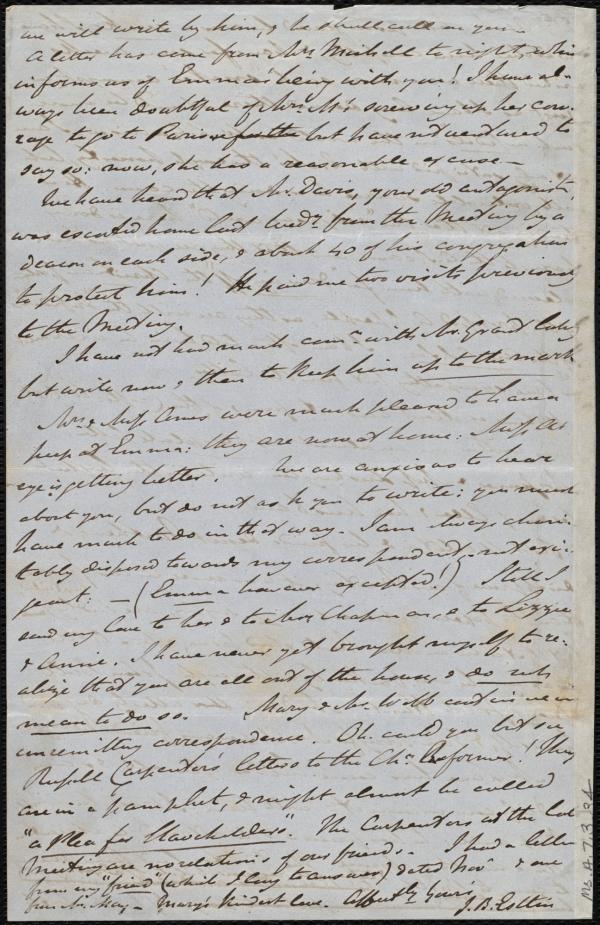 we will write by him, & he shall call on you —
A letter has come from Mrs Michell to night, which
informs us of Emma's being with you! I have al-
ways been doubtful of Mrs. M's screwing up her cou-
rage to go to Paris but have not ventured to
say so: now, she has a reasonable excuse —
We have heard that Mr. Davis, your old antagonist,
was escorted home last Wedy. from the Meeting by a
deacon on each side, & about 40 of his congregation
to protect him! He paid me two visits previously
to the Meeting.
I have not had much comn. with Mr. Grant lately
but write now & then to keep him up to the mark
Mrs & Miss Ames were much pleased to have a
peep at Emma: they are now at home: Miss A's
eye is getting better. We are anxious to hear
about you, but do not ask you to write: you must
have much to do in that way. I am always chari-
tably disposed towards my correspondents — not exi-
geant: — (Emma however excepted!) Still I
send my love to her & to Mrs Chapman, & to Lizzie
& Annie. I have never yet brought myself to re-
alize that you are all out of the house, & do not
mean to do so. Mary & Mr. Webb continue in
unremitting correspondence. Oh. could you but see
Russell Carpenter's letters to the Chn. Reformer! They
are in a pamphlet, & might almost be called
"a Plea for Slaveholders". The Carpenters at the
Meeting are no relations of our friends. I had a letter
from my "friend" (which I long to answer) dated Novr & one
from Mr. May — Mary's kindest love. Affectly yours
J. B. Estlin
Ms. A. 7. 3